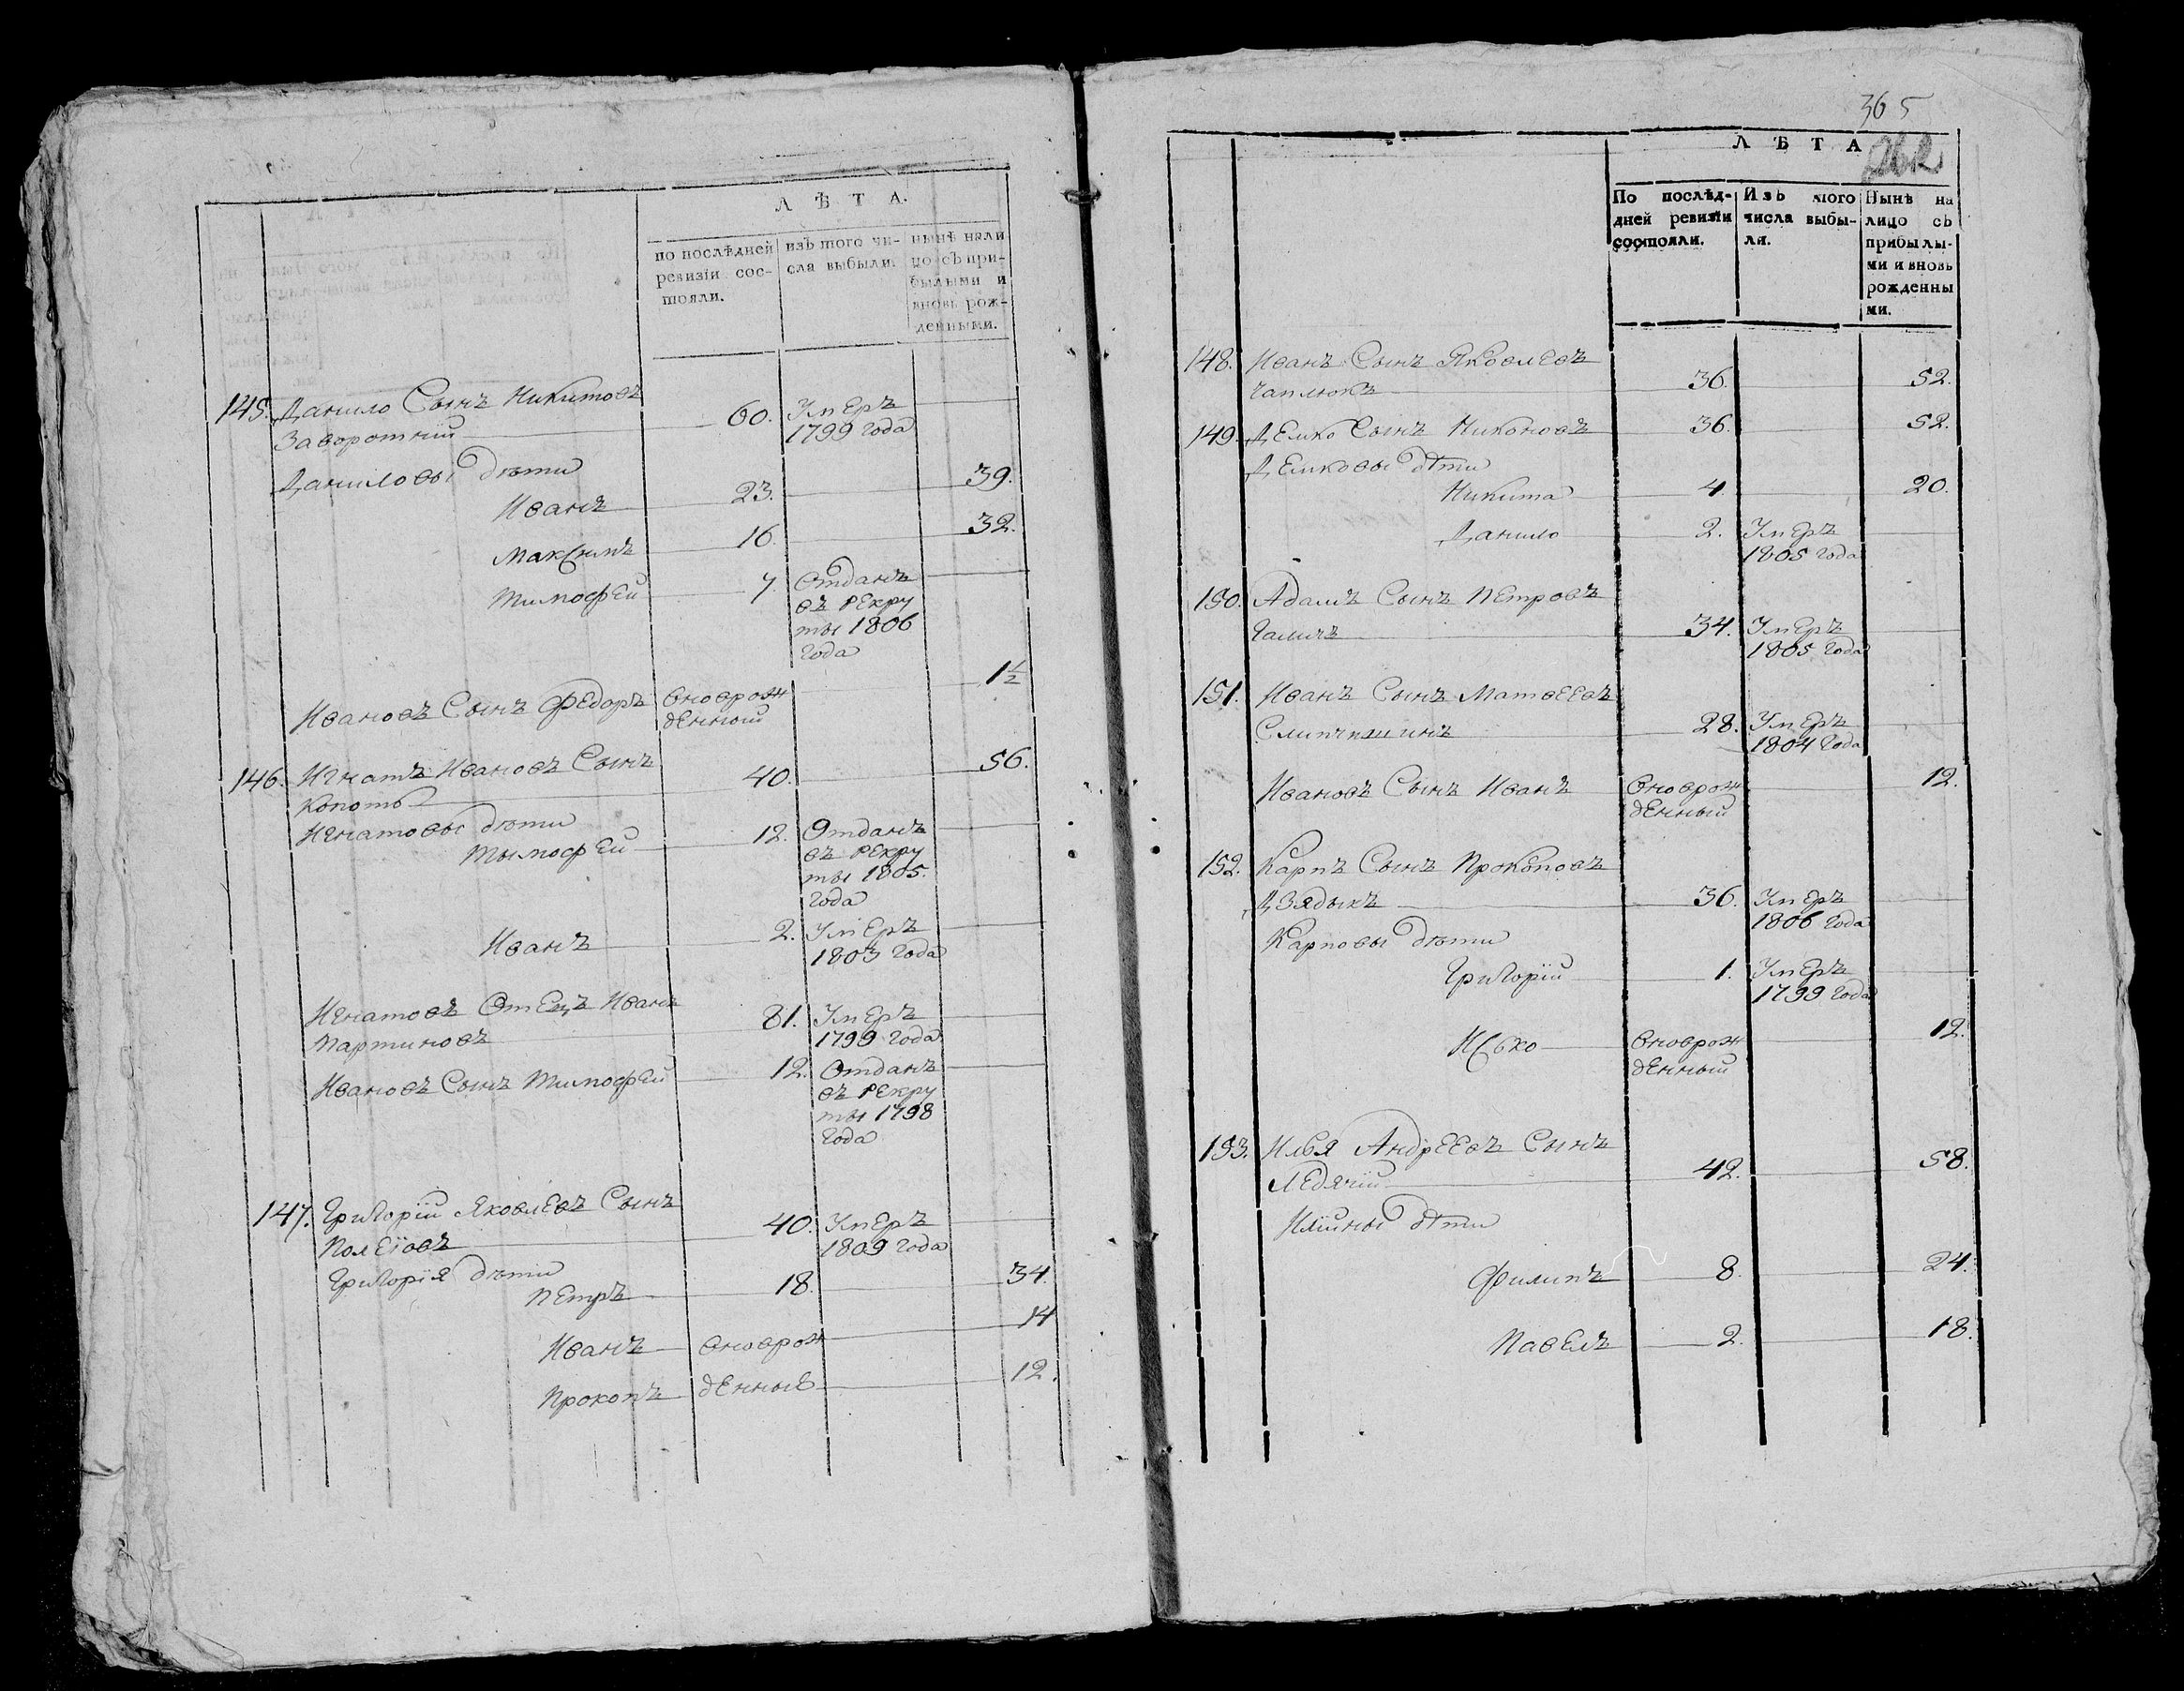 Л Ѣ Т А.
по послѣдней ревизіи состояли.
изъ того числа выбыли.
нынѣ налицо съ прибылыми и вновь рожденными.
145. Данило Сынъ Никитовъ
Заворотній 60. Умеръ
1799 года
Даниловы дѣти
Иванъ 23. 39.
Максимъ 16. 32.
Тимофей 7. Отданъ
въ рекру
ты 1806
года
Ивановъ Сынъ Федоръ вноврож 1½
денный
146. Игнатъ Ивановъ Сынъ 40. 56.
Копоть
Игнатовы дѣти
Тымофей 12. Отданъ
въ рекру
ты 1805.
года
Иванъ 2. Умеръ
1803 года
Игнатовъ Отецъ Иванъ
Мартиновъ 81. Умеръ
1799 года
Ивановъ Сынъ Тимофей 12. Отданъ
въ рекру
ты 1798
года
147. Григорій Яковлевъ Сынъ
40. Умеръ
1809 года
Григорія дѣти
Петръ 18. 34.
Иванъ вноврож 14
Прокопъ денные 12.
365
262
Л Ѣ Т А
По послѣдней ревизіи состояли.
Изъ того числа выбыли.
Нынѣ на лицо съ прибылыми и вновь рожденными.
148. Иванъ Сынъ Яковлевъ
Чаплюкъ 36. 52.
149. Демко Сынъ Никоновъ 36. 52.
Демковы дѣти
Никита 4. 20.
Данило 2. Умеръ
1805 года
150. Адамъ Сынъ Петровъ
Галичъ 34. Умеръ
1805 года
151. Иванъ Сынъ Матвеевъ
28. Умеръ
1804 года
Ивановъ Сынъ Иванъ вноврож 12.
денный
152. Карпъ Сынъ Прокоповъ
Дзядыкъ 36. Умеръ
1806 года
Карповы дѣти
Григорій 1. Умеръ
1799 года
Исько вноврож 12.
денный
153. Илья Андреевъ Сынъ
Ледячій 42. 58.
Иліины дѣти
Филипъ 8. 24.
Павелъ 2. 18.